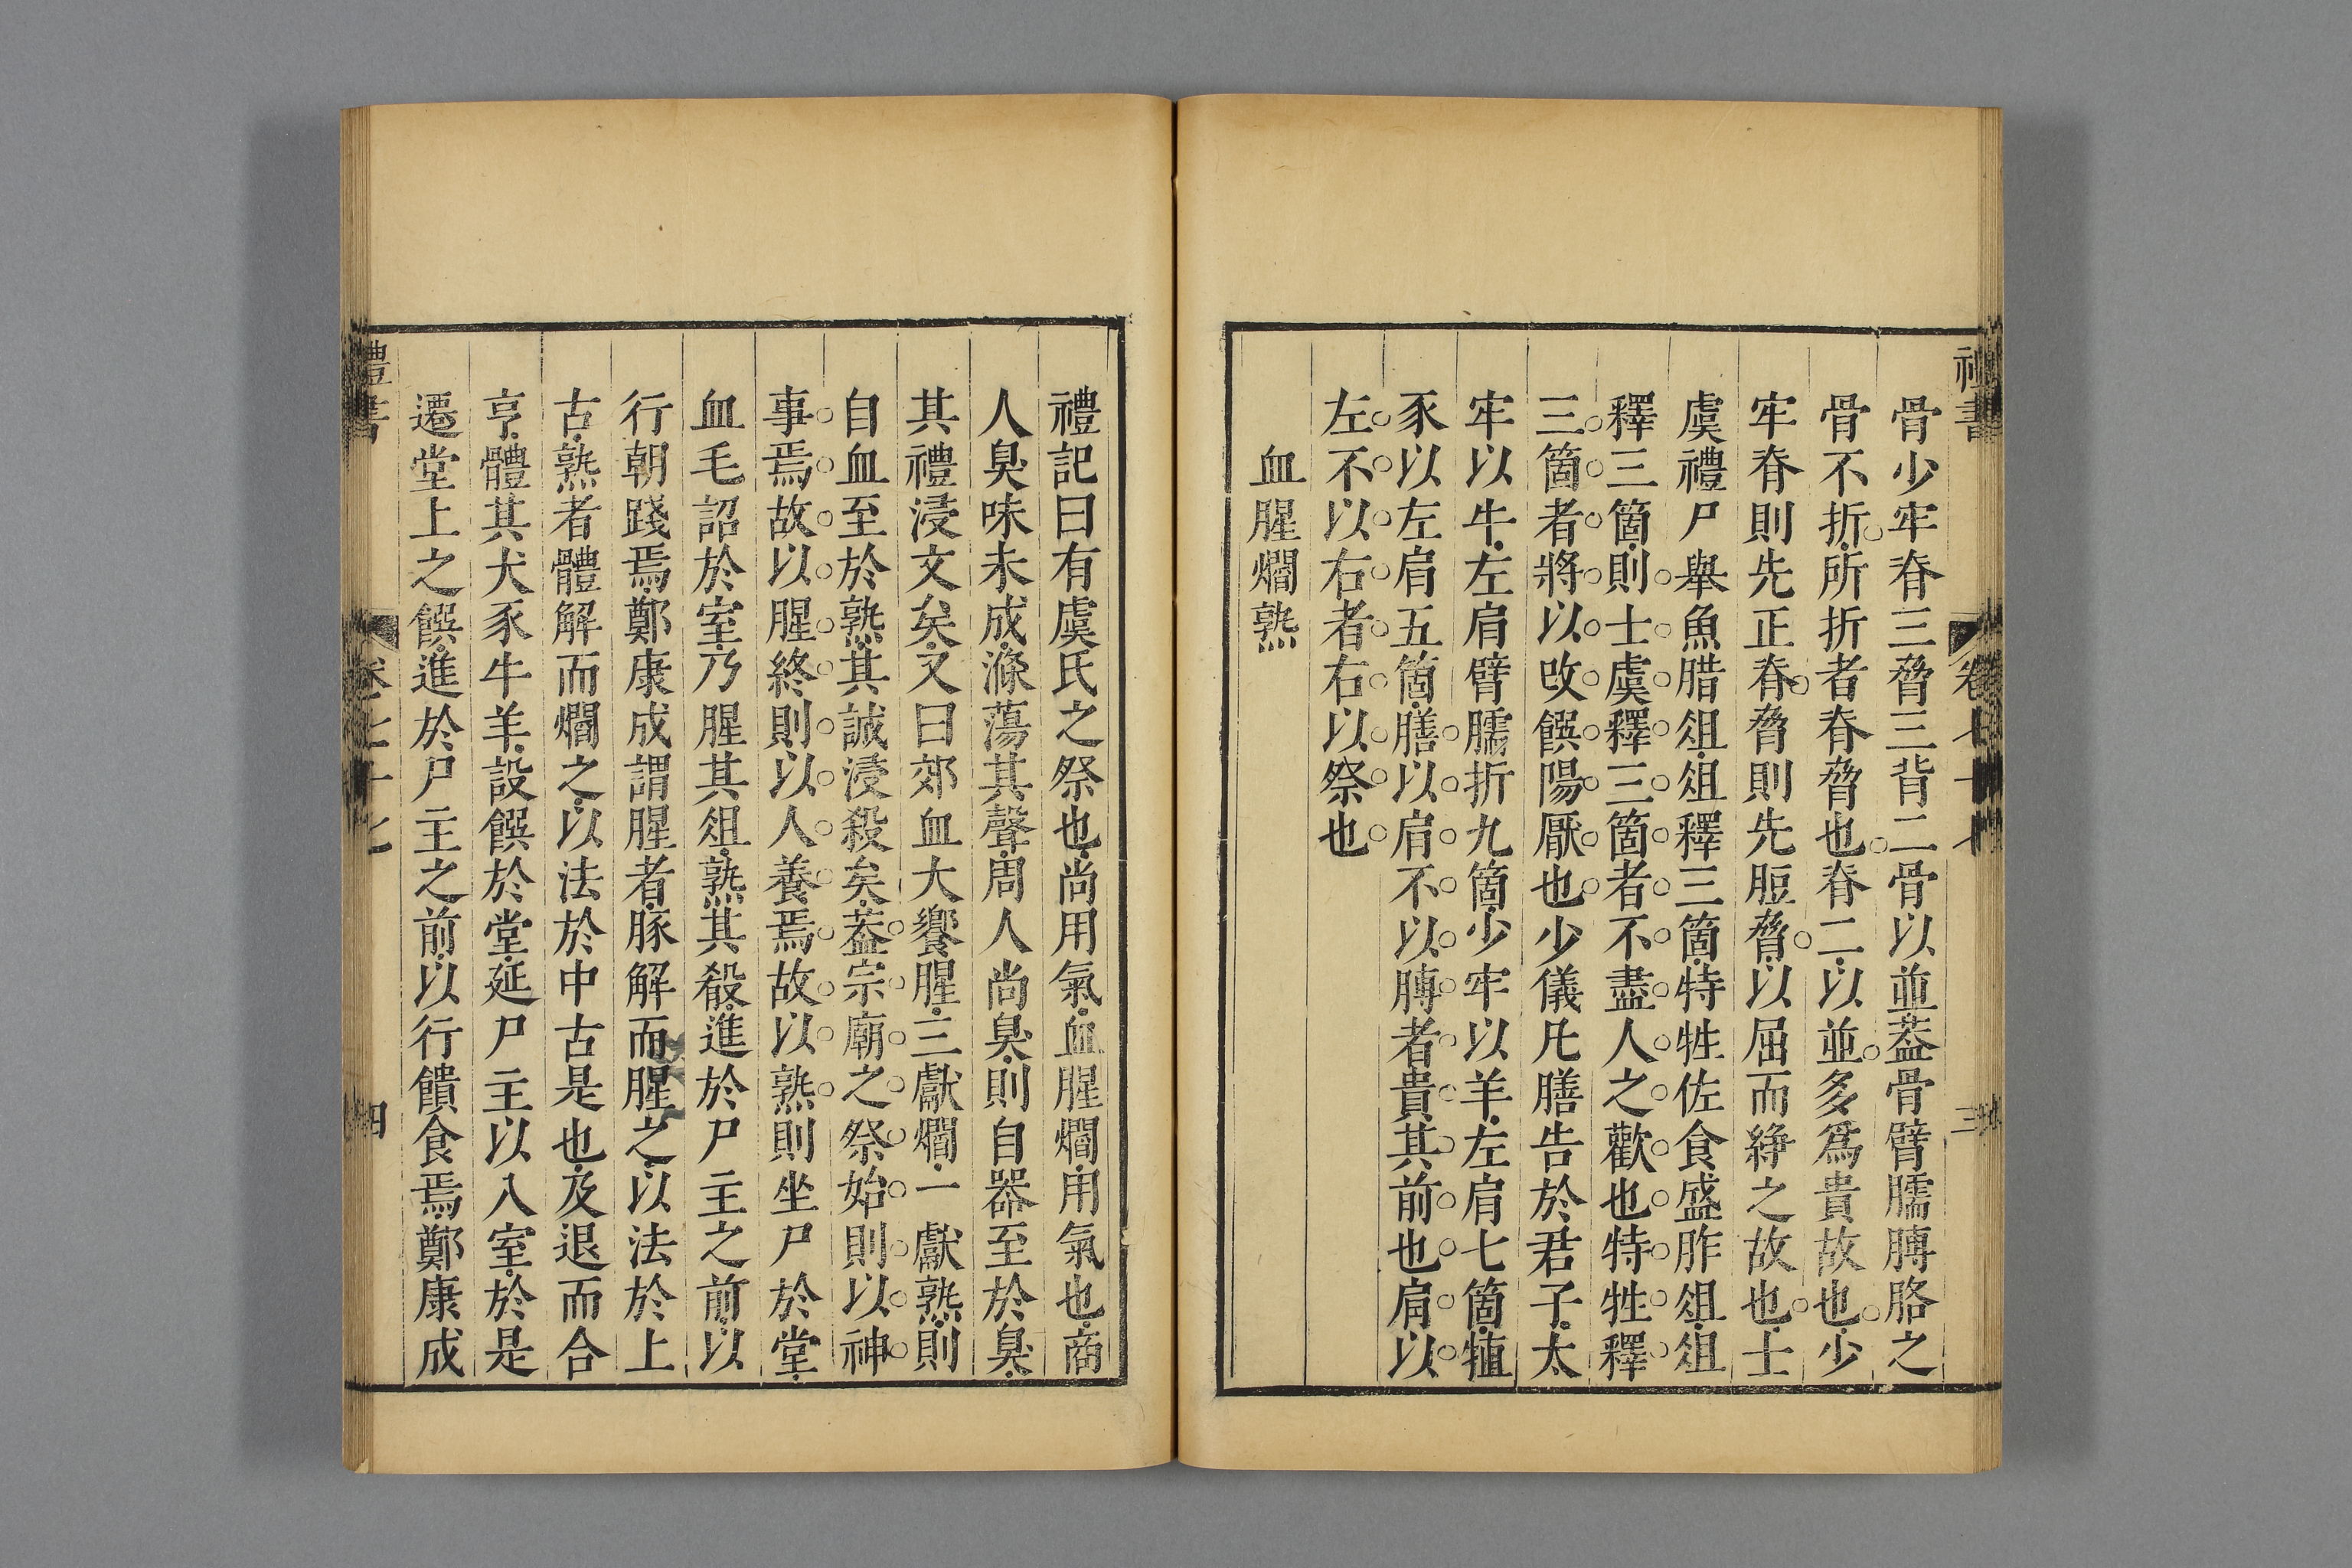 禮書
卷七十七
三
骨少牢脊三脅三背二骨以並葢骨臂臑膊胳之
骨不折所折者脊脅也脊二以並多爲貴故也少
牢脊則先正脊脅則先脰脅以屈而綪之故也士
虞禮尸舉魚腊俎俎釋三箇特牲佐食盛胙俎俎
釋三箇則士虞釋三箇者不盡人之歡也特牲釋
三箇者將以改饌陽厭也少儀凡膳告於君子太
牢以牛左肩臂臑折九箇少牢以羊左肩七箇犆
豕以左肩五箇膳以肩不以膊者貴其前也肩以
左不以右者右以祭也
血腥爓熟
禮記曰有虞氏之祭也尚用氣血腥爓用氣也商
人臭味未成滌蕩其聲周人尚臭則自器至於臭
其禮浸文矣又曰郊血大饗腥三獻爓一獻熟則
自血至於熟其誠浸殺矣葢宗廟之祭始則以神
事焉故以腥終則以人養焉故以熟則坐尸於堂
血毛詔於室乃腥其俎熟其殽進於尸主之前以
行朝踐焉鄭康成謂腥者豚解而腥之以法於上
古熟者體解而爓之以法於中古是也及退而合
亨體其犬豕牛羊設饌於堂延尸主以入室於是
遷堂上之饌進於尸主之前以行饋食焉鄭康成
禮書
卷七十七
四